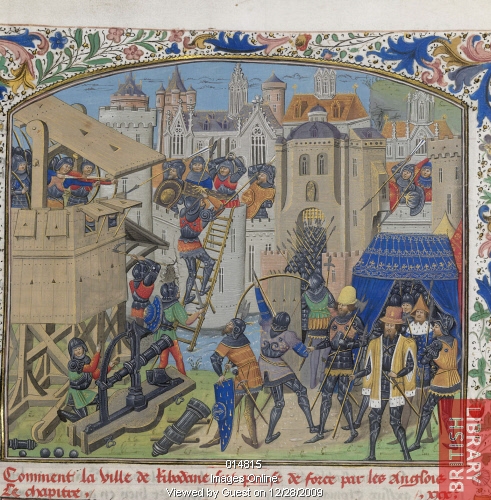 BRITISH LIBRARY
Comment la ville de Ribadane fu prise de force par les Anglois
Le chapitre
014815
Images Online
Viewed by Guest on 12/28/2009